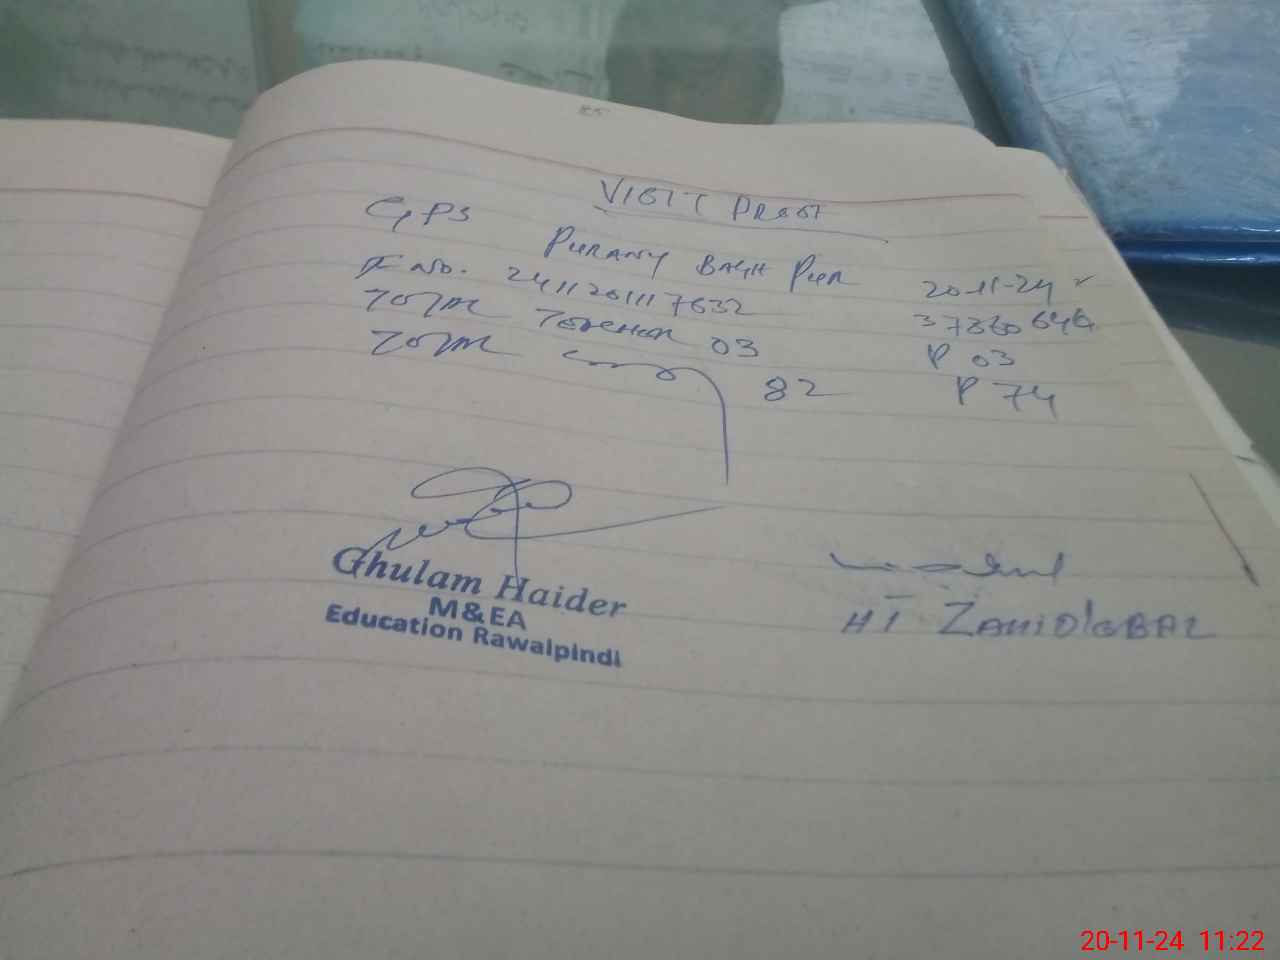 VISIT PROOF
GPS PURANY BAGH PUR 20-11-24
F no. 2411201117632 37360646
TOTAL TEACHER 03 P 03
TOTAL 82 P 74
Ghulam Haider
M&EA
Education Rawalpindi
HT ZAHID IQBAL
20-11-24 11:22